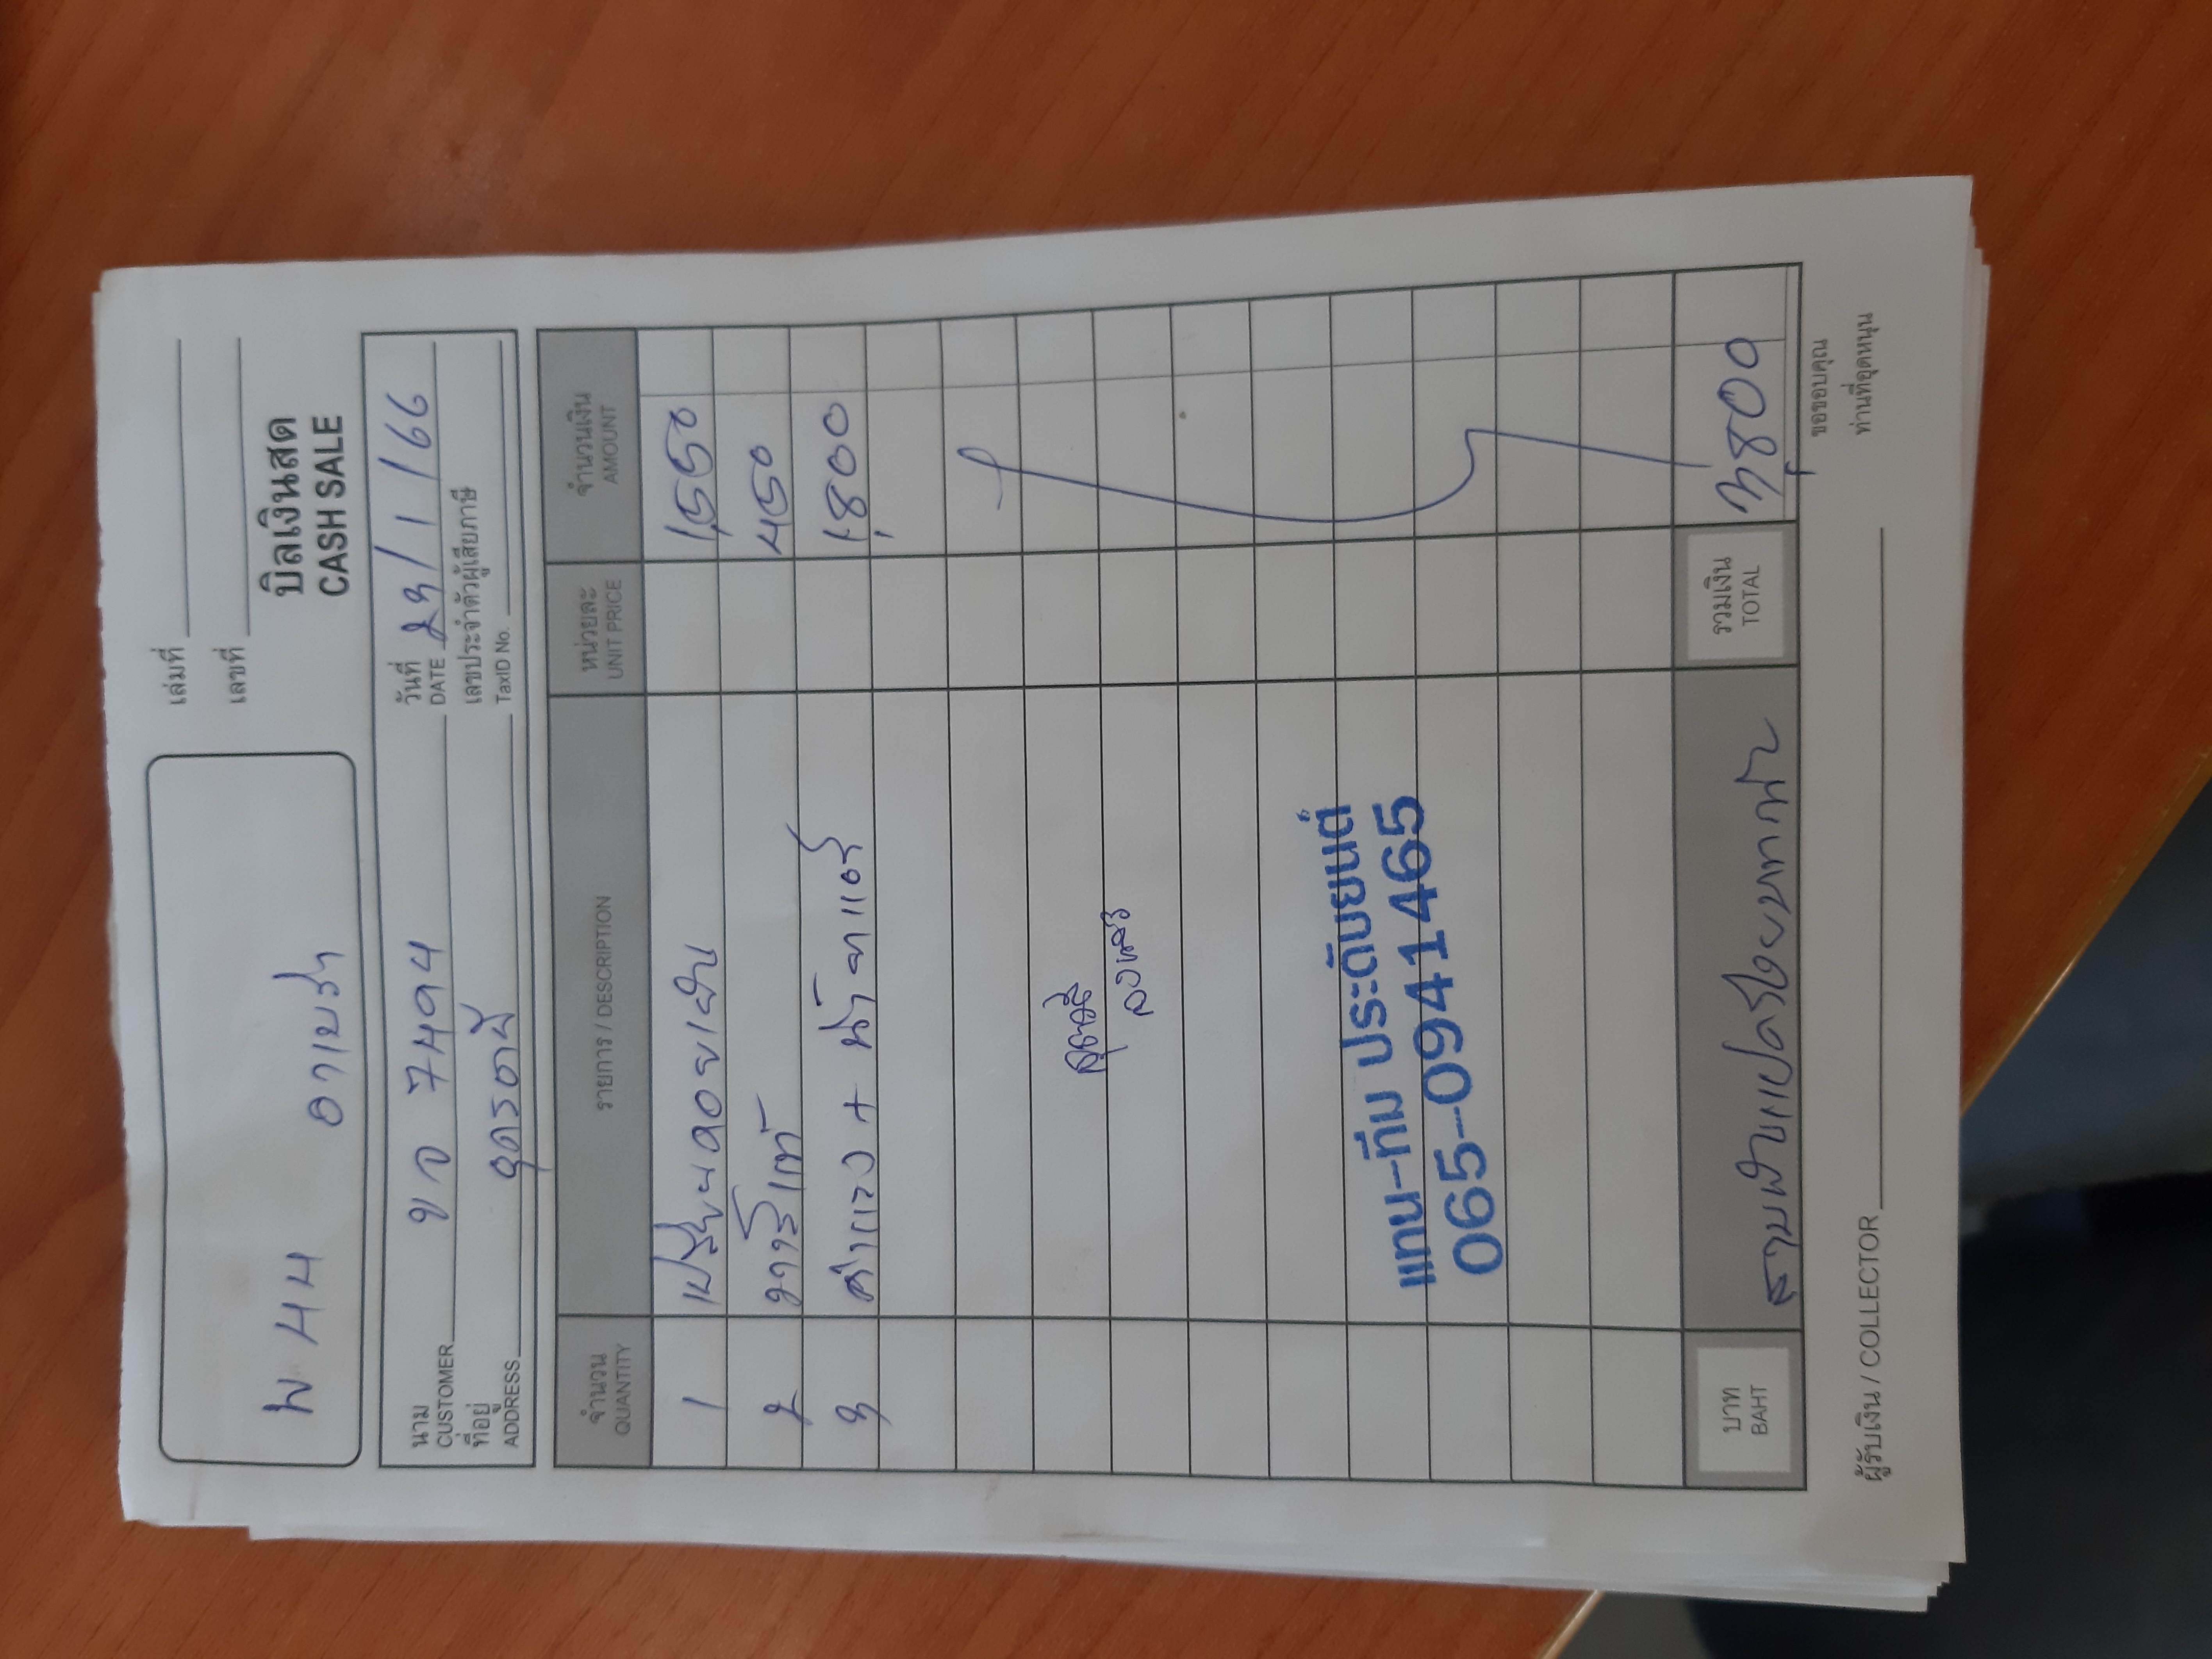 เล่มที่
เลขที่
พ 44 อาเบรา
บิลเงินสด
CASH SALE
นาม
CUSTOMER
บจ 7494
วันที่
DATE
23/1/66
ที่อยู่
ADDRESS
อุดรธานี
เลขประจำตัวผู้เสียภาษี
TaxID No.
จำนวน
QUANTITY
รายการ / DESCRIPTION
หน่วยละ
UNIT PRICE
จำนวนเงิน
AMOUNT
1 เปลี่ยนคอยเย็น 1,550
2 วาล์วแท้ 450
3 ค่าแรง + น้ำยาแอร์ 1,800
แทน-ทีม ประดับยนต์
065-0941465
บาท
BAHT
สามพันแปดร้อยบาทถ้วน
รวมเงิน
TOTAL
3,800
ผู้รับเงิน / COLLECTOR
ขอขอบคุณ
ท่านที่อุดหนุน